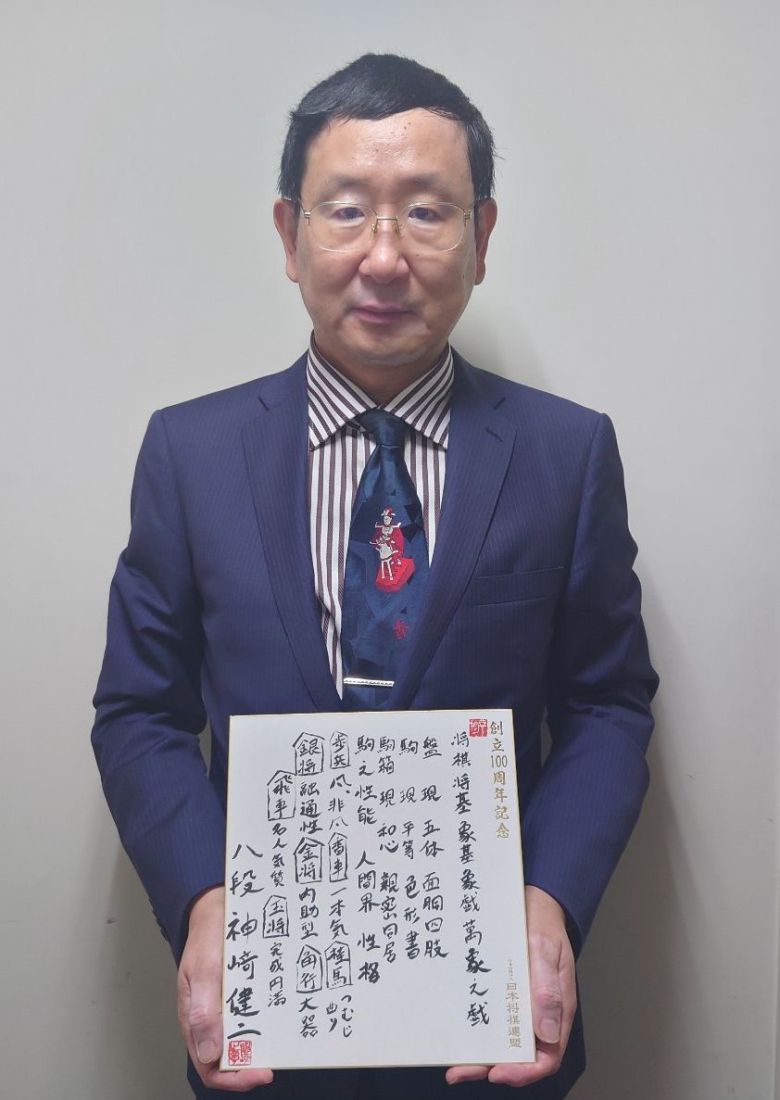 創立100周年記念
将棋将基象基象戯萬象之戯
盤 現 五体 面胴四肢
駒 現 平等 色形書
駒箱 現 和心 親密同居
駒之性能 人間界 性格
歩兵 凡、非凡 香車 一本気 桂馬 つむじ曲り
銀将 融通性 金将 内助型 角行 大器
飛車 名人気質 玉将 完成円満
八段 神﨑健二
日本将棋連盟